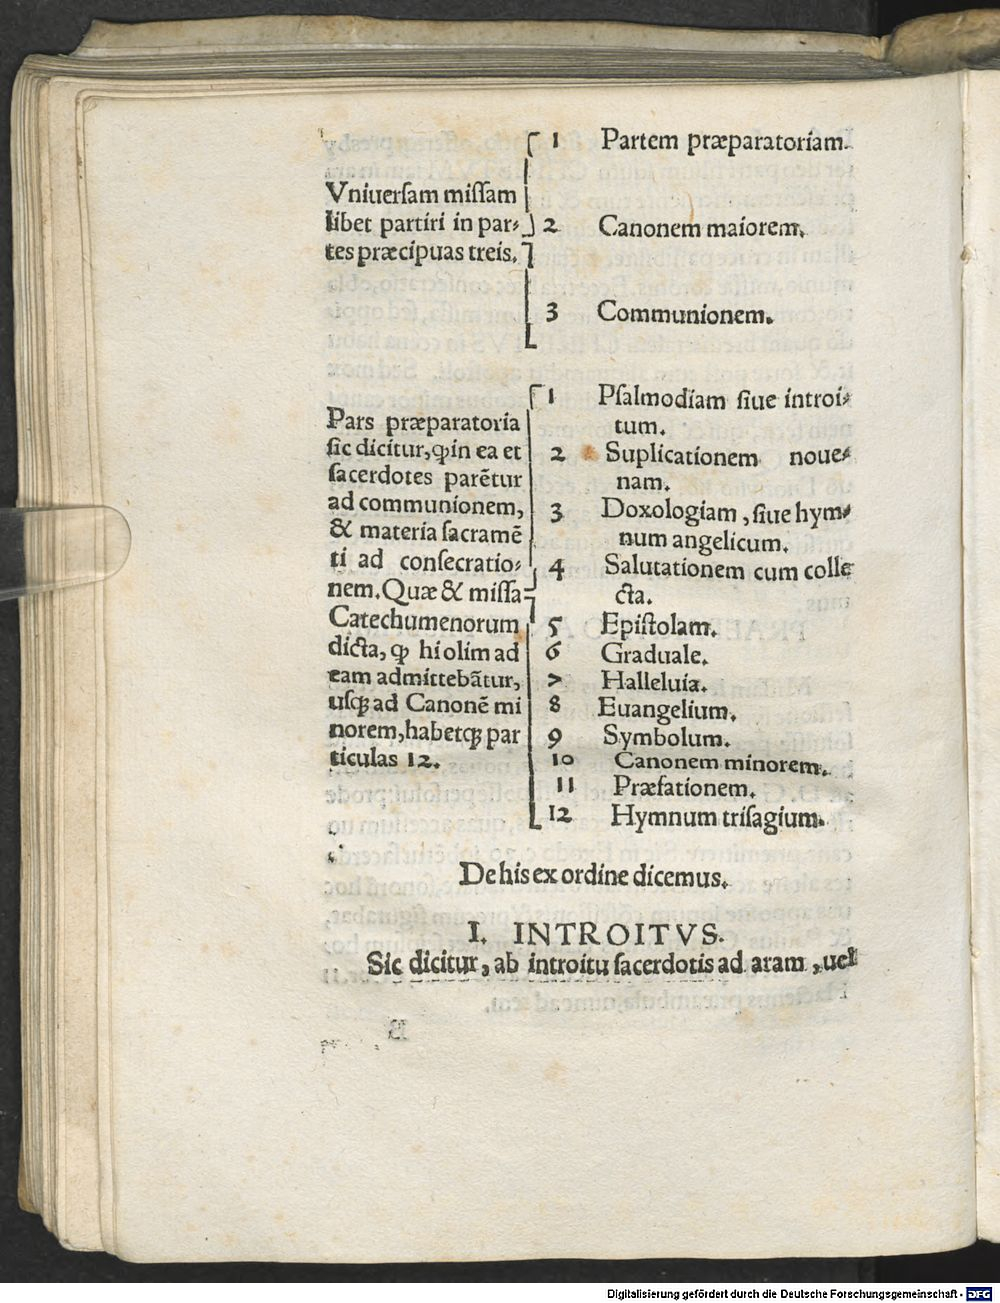 Vniuersam missam
libet partiri in par⸗
tes præcipuas treis.
1 Partem præparatoriam.
2 Canonem maiorem.
3 Communionem.
Pars præparatoria
sic dicitur, ꝙ in ea et
sacerdotes parẽtur
ad communionem,
& materia sacramẽ
ti ad consecratio⸗
nem. Quæ & missa
Catechumenorum
dicta, ꝙ hi olim ad
eam admittebãtur,
usqꝫ ad Canonẽ mi
norem, habetqꝫ par
ticulas 12.
1 Psalmodiam siue introi⸗
tum.
2 Suplicationem noue⸗
nam.
3 Doxologiam, siue hym⸗
num angelicum.
4 Salutationem cum colle
cta.
5 Epistolam.
6 Graduale.
7 Halleluia.
8 Euangelium.
9 Symbolum.
10 Canonem minorem.
11 Præfationem.
12 Hymnum trisagium.
De his ex ordine dicemus.
I. INTROITVS.
Sic dicitur, ab introitu sacerdotis ad aram, uel
Digitalisierung gefördert durch die Deutsche Forschungsgemeinschaft - DFG